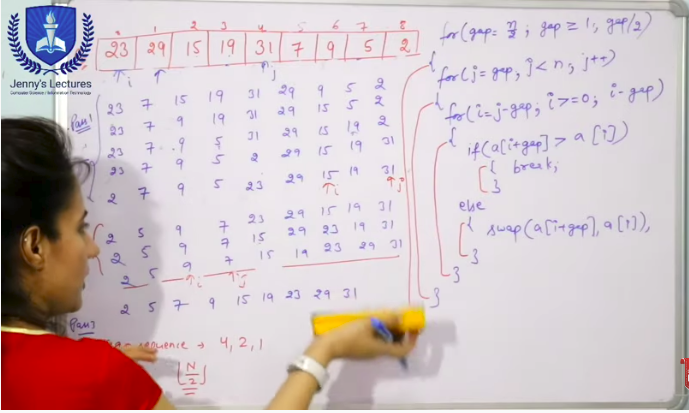 Jenny's Lectures
Computer Science / Information Technology
0 1 2 3 4 5 6 7 8
23 29 15 19 31 7 9 5 2
↑i ↑j
Pass 1
23 7 15 19 31 29 9 5 2
23 7 9 19 31 29 15 5 2
23 7 9 5 31 29 15 19 2
23 7 9 5 2 29 15 19 31
2 7 9 5 23 29 15 19 31
↑i ↑j
2 5 9 7 23 29 15 19 31
2 5 9 7 15 29 23 19 31
2 5 9 7 15 19 23 29 31
↑i ↑j
Pass 3
2 5 7 9 15 19 23 29 31
sequence → 4, 2, 1
⌊N/2⌋
for(gap=n/2; gap≥1; gap/2)
{
for(j=gap; j<n; j++)
{
for(i=j-gap; i>=0; i-gap)
{
if(a[i+gap] > a[i])
{ break;
}
else
{ swap(a[i+gap], a[i]),
}
}
}